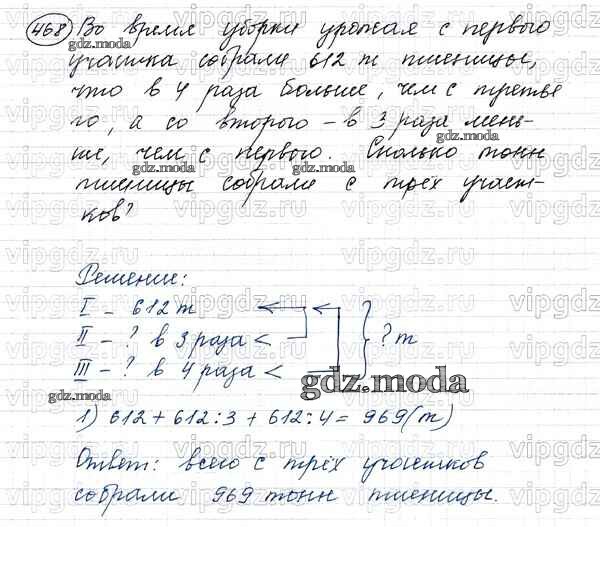 468 Во время уборки урожая с первого
участка собрали 612 т пшеницы,
что в 4 раза больше, чем с третье
го, а со второго – в 3 раза мень-
ше, чем с первого. Сколько тонн
пшеницы собрали с трёх участ-
ков?
Решение:
I – 612 т
II – ? в 3 раза <
III – ? в 4 раза <
? т
1) 612 + 612 : 3 + 612 : 4 = 969 (т)
Ответ: всего с трёх участков
собрали 969 тонн пшеницы.
gdz.moda
vipgdz.ru